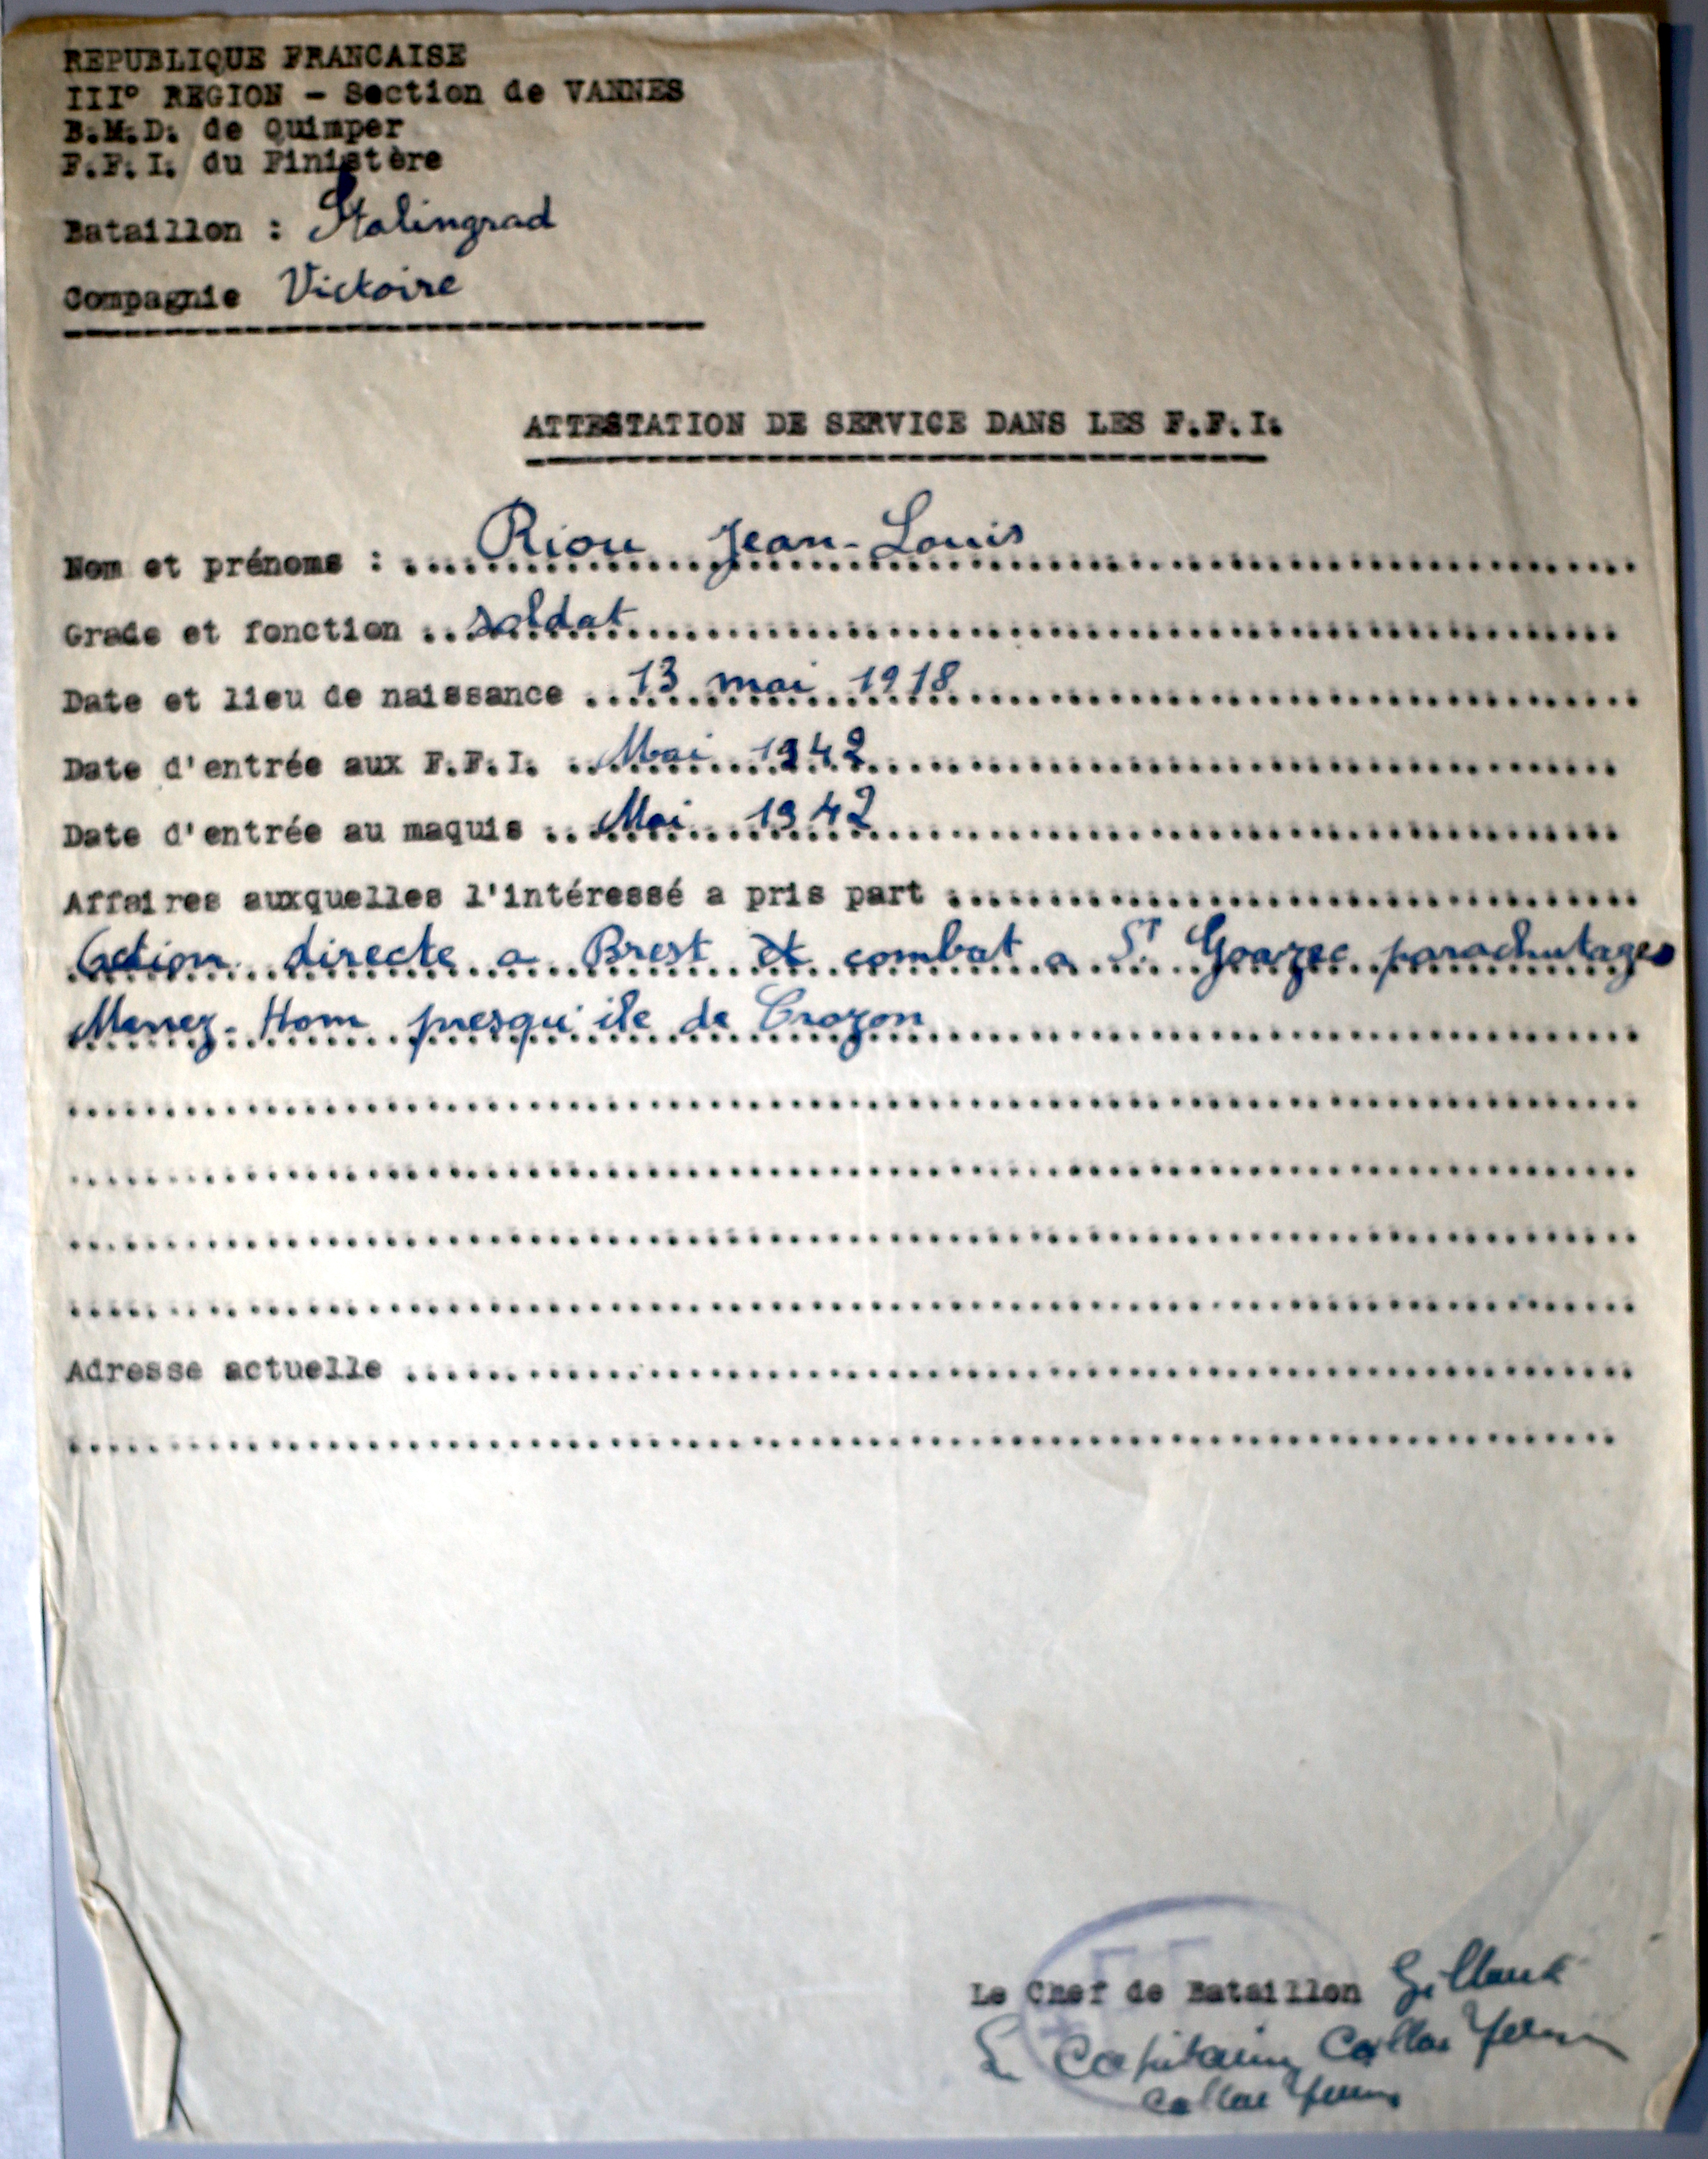 REPUBLIQUE FRANCAISE
III° REGION - Section de VANNES
B.M.D. de Quimper
F.F.I. du Finistère
Bataillon : Stalingrad
Compagnie Victoire
ATTESTATION DE SERVICE DANS LES F.F.I.
Nom et prénoms : Riou Jean-Louis
Grade et fonction soldat
Date et lieu de naissance 13 mai 1918
Date d'entrée aux F.F.I. Mai 1942
Date d'entrée au maquis Mai 1942
Affaires auxquelles l'intéressé a pris part
Action directe a Brest et combat a St Goazec parachutages
Menez-Hom presqu'ile de Crozon
Adresse actuelle
Le Chef de Bataillon
Capitaine